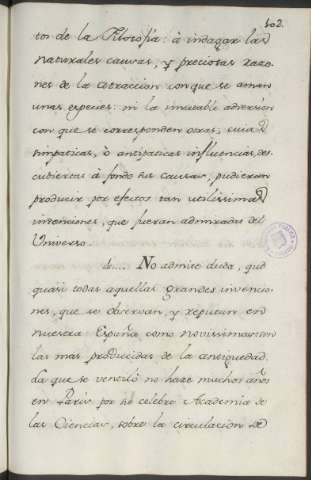 102.
tos de la Filosofia: à indagar las
naturales causas, y preciosas razo-
nes de la atraccion con que se aman
unas especies: ni la inutable adversion
con que se corresponden otras, cuias
simpaticas, ò antipaticas influencias, des-
cubiertas à fondo sus causas, pudieran
producir por efectos tan utilissimas
intenciones, que fueran admiradas del
Universo.
No admite duda, que
quasi todas aquellas grandes invencio-
nes, que se observan, y reputan en
nuestra España como novissimas son
las mas producidas de la antiguedad.
La que se ventiló no haze muchos años
en Paris por su celebre Academia de
las Ciencias, sobre la circulacion de